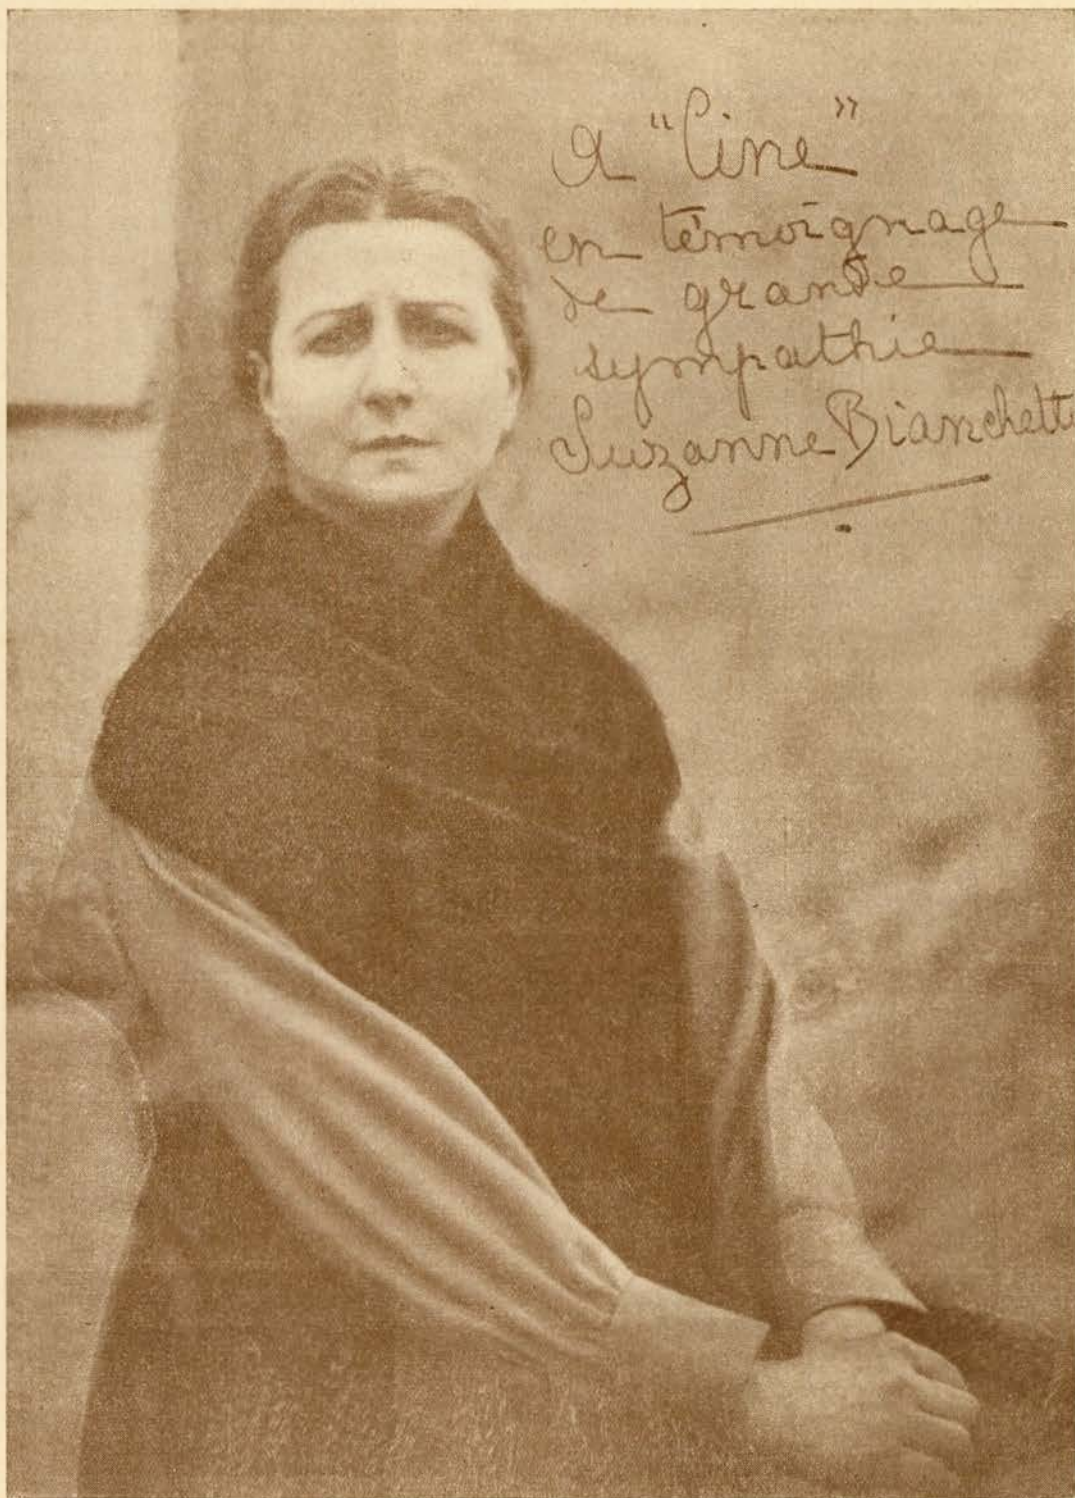 A "Cine"
en témoignage
de grande
sympathie
Suzanne Bianchetti